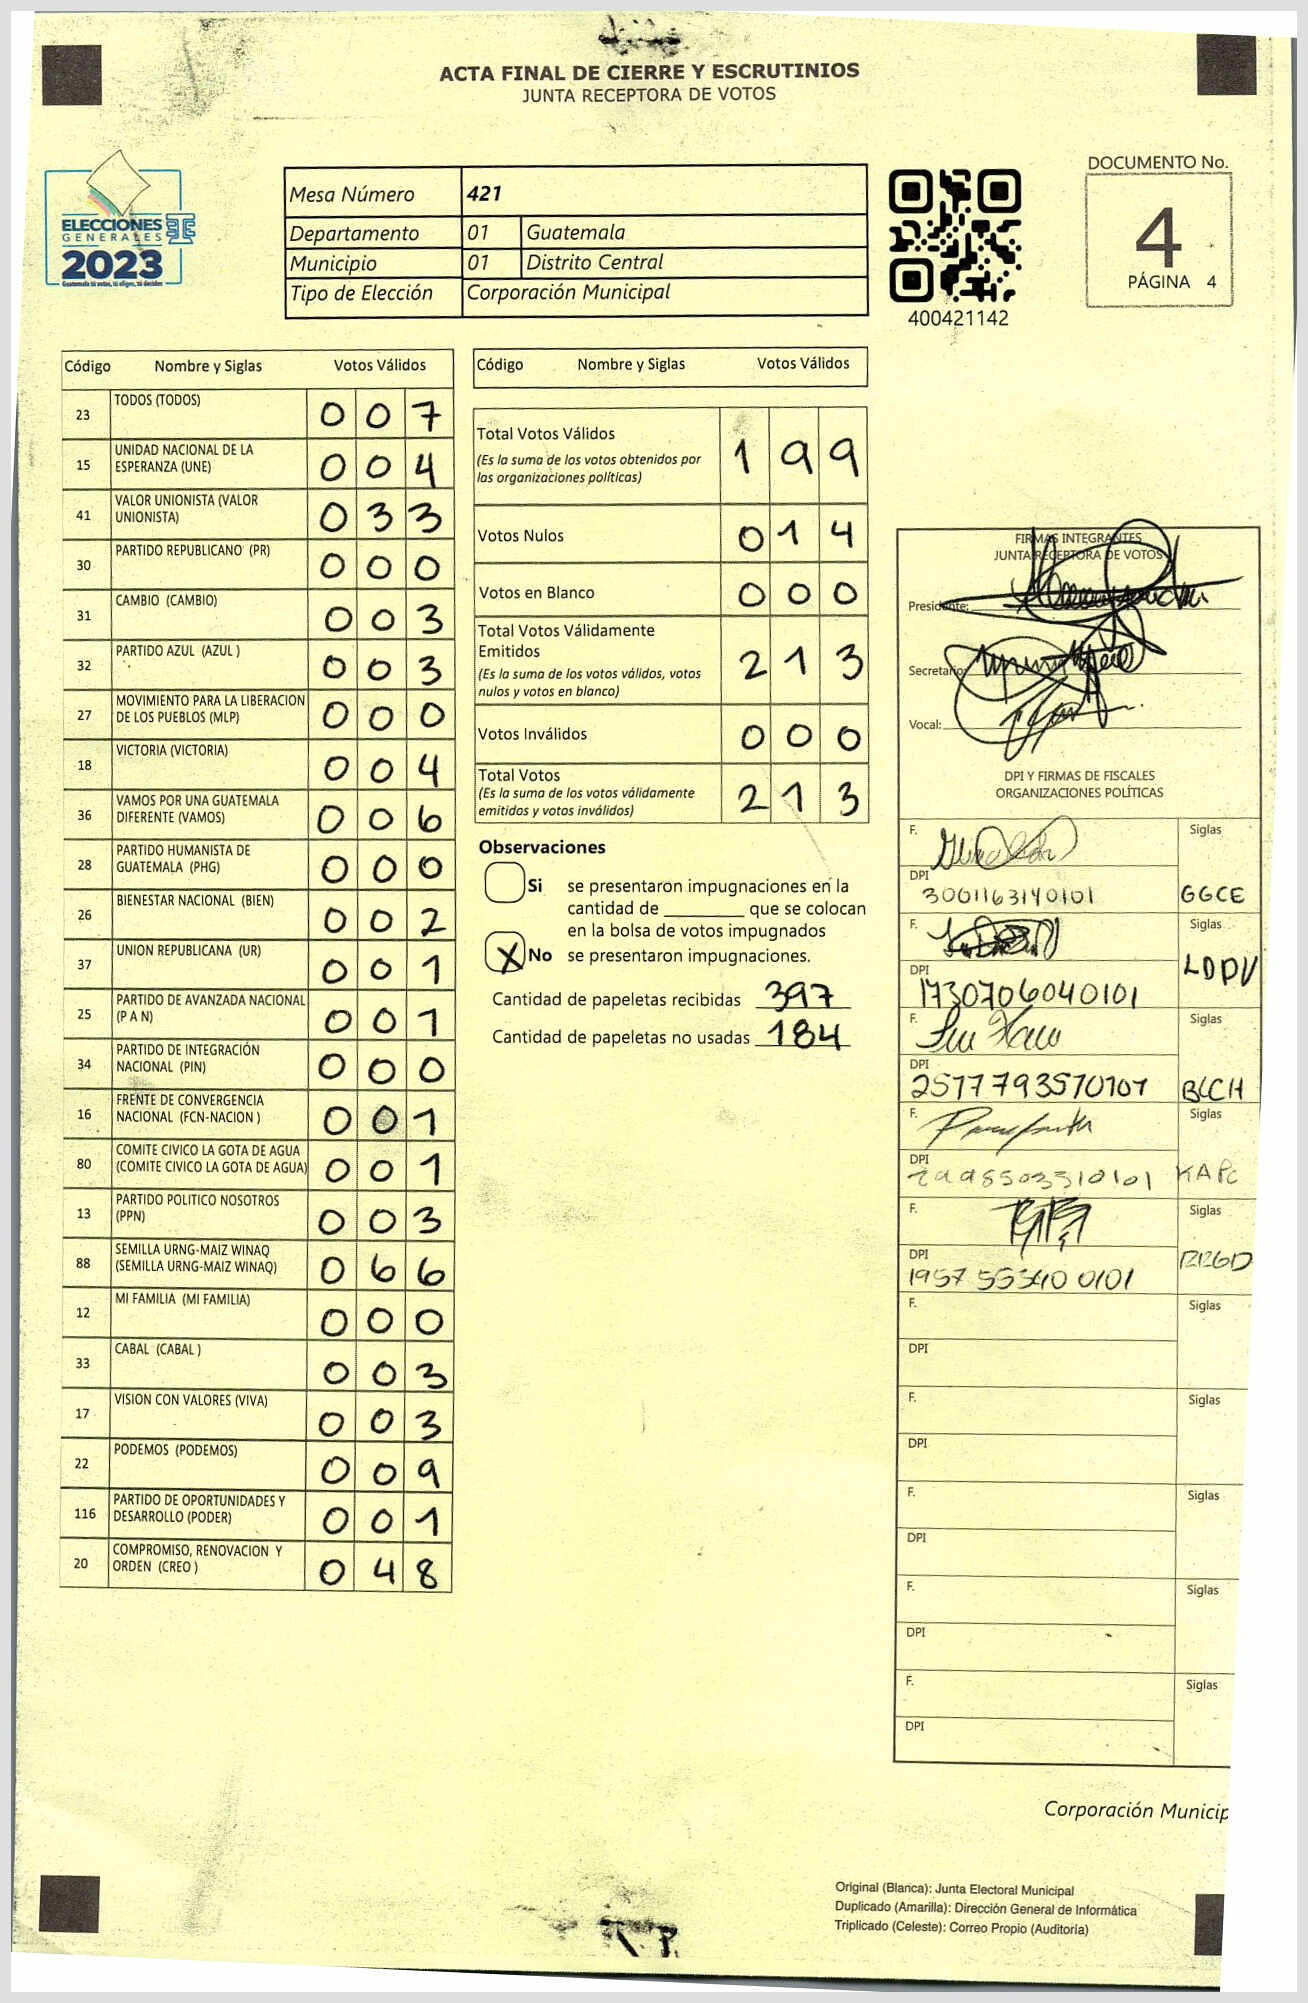 ACTA FINAL DE CIERRE Y ESCRUTINIOS
JUNTA RECEPTORA DE VOTOS
ELECCIONES
GENERALES
2023
Guatemala tú votas, tú eliges, tú decides
Mesa Número 421
Departamento 01 Guatemala
Municipio 01 Distrito Central
Tipo de Elección Corporación Municipal
400421142
DOCUMENTO No.
4
PÁGINA 4
Código Nombre y Siglas Votos Válidos
23 TODOS (TODOS) 0 0 7
15 UNIDAD NACIONAL DE LA
ESPERANZA (UNE) 0 0 4
41 VALOR UNIONISTA (VALOR
UNIONISTA) 0 3 3
30 PARTIDO REPUBLICANO (PR) 0 0 0
31 CAMBIO (CAMBIO) 0 0 3
32 PARTIDO AZUL (AZUL ) 0 0 3
27 MOVIMIENTO PARA LA LIBERACION
DE LOS PUEBLOS (MLP) 0 0 0
18 VICTORIA (VICTORIA) 0 0 4
36 VAMOS POR UNA GUATEMALA
DIFERENTE (VAMOS) 0 0 6
28 PARTIDO HUMANISTA DE
GUATEMALA (PHG) 0 0 0
26 BIENESTAR NACIONAL (BIEN) 0 0 2
37 UNION REPUBLICANA (UR) 0 0 1
25 PARTIDO DE AVANZADA NACIONAL
(P A N) 0 0 1
34 PARTIDO DE INTEGRACIÓN
NACIONAL (PIN) 0 0 0
16 FRENTE DE CONVERGENCIA
NACIONAL (FCN-NACION ) 0 0 1
80 COMITE CIVICO LA GOTA DE AGUA
(COMITE CIVICO LA GOTA DE AGUA) 0 0 1
13 PARTIDO POLITICO NOSOTROS
(PPN) 0 0 3
88 SEMILLA URNG-MAIZ WINAQ
(SEMILLA URNG-MAIZ WINAQ) 0 6 6
12 MI FAMILIA (MI FAMILIA) 0 0 0
33 CABAL (CABAL ) 0 0 3
17 VISION CON VALORES (VIVA) 0 0 3
22 PODEMOS (PODEMOS) 0 0 9
116 PARTIDO DE OPORTUNIDADES Y
DESARROLLO (PODER) 0 0 1
20 COMPROMISO, RENOVACION Y
ORDEN (CREO ) 0 4 8
Código Nombre y Siglas Votos Válidos
Total Votos Válidos 1 9 9
(Es la suma de los votos obtenidos por
las organizaciones políticas)
Votos Nulos 0 1 4
Votos en Blanco 0 0 0
Total Votos Válidamente
Emitidos 2 1 3
(Es la suma de los votos válidos, votos
nulos y votos en blanco)
Votos Inválidos 0 0 0
Total Votos 2 1 3
(Es la suma de los votos válidamente
emitidos y votos inválidos)
Observaciones
Si se presentaron impugnaciones en la
cantidad de ________ que se colocan
en la bolsa de votos impugnados
X No se presentaron impugnaciones.
Cantidad de papeletas recibidas 397
Cantidad de papeletas no usadas 184
FIRMAS INTEGRANTES
JUNTA RECEPTORA DE VOTOS
Presidente:
Secretario:
Vocal:
DPI Y FIRMAS DE FISCALES
ORGANIZACIONES POLÍTICAS
F. Siglas
DPI
3001163140101 GGCE
F. Siglas
DPI LDPV
1730706040101
F. Siglas
DPI
2577793570101 BLCH
F. Siglas
DPI
2998503310101 KAPC
F. Siglas
DPI
1957 55340 0101 RRGD
F. Siglas
DPI
F. Siglas
DPI
F. Siglas
DPI
F. Siglas
DPI
F. Siglas
DPI
Corporación Municip
Original (Blanca): Junta Electoral Municipal
Duplicado (Amarilla): Dirección General de Informática
Triplicado (Celeste): Correo Propio (Auditoría)